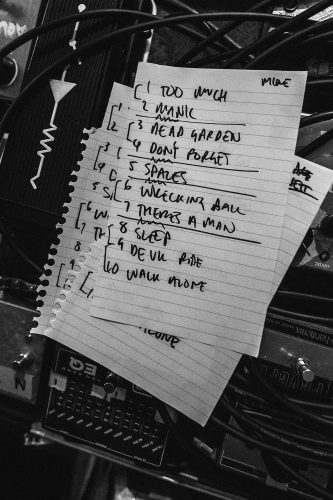 MIKE
1 TOO MUCH
2 MANIC
3 HEAD GARDEN
4 DON'T FORGET
5 SPACES
6 WRECKING BALL
7 THERES A MAN
8 SLEEP
9 DEVIL RIDE
10 WALK ALONE
EQ